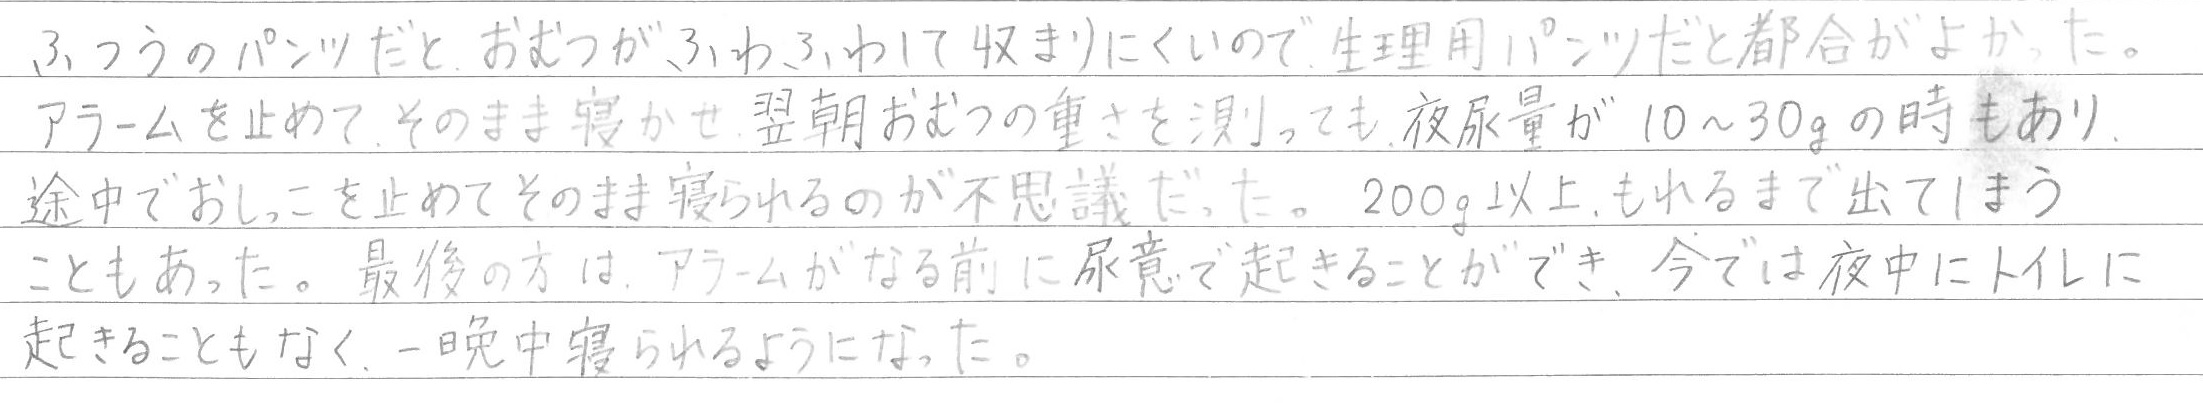 ふつうのパンツだと、おむつがふわふわして収まりにくいので、生理用パンツだと都合がよかった。
アラームを止めて、そのまま寝かせ、翌朝おむつの重さを測っても、夜尿量が10～30gの時もあり、
途中でおしっこを止めてそのまま寝られるのが不思議だった。200g以上、もれるまで出てしまう
こともあった。最後の方は、アラームがなる前に尿意で起きることができ、今では夜中にトイレに
起きることもなく、一晩中寝られるようになった。